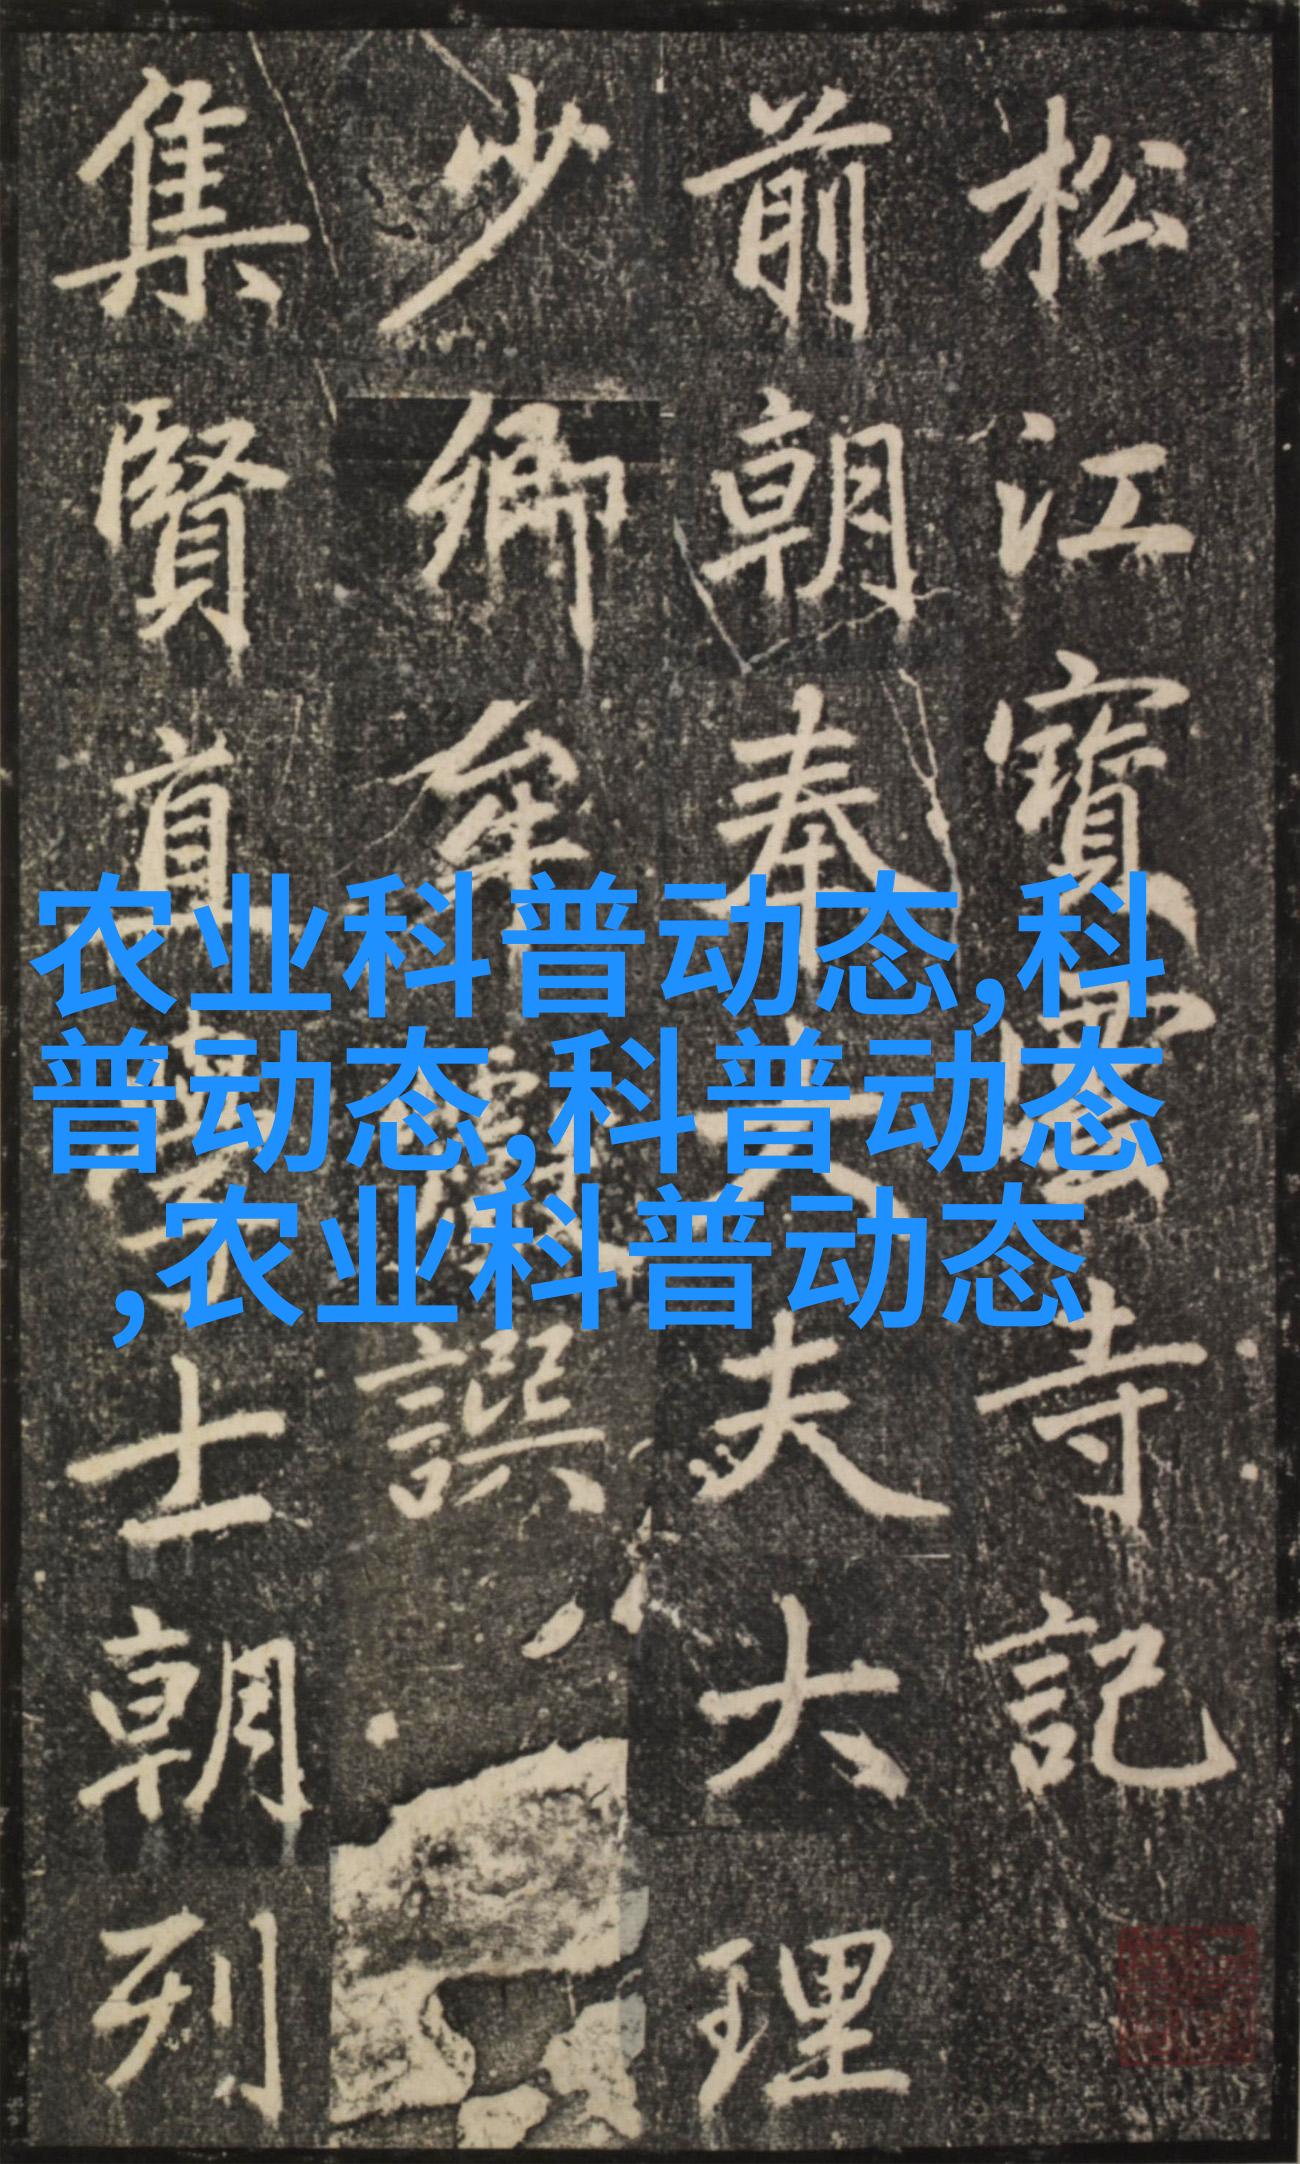 松江寶雲寺記
前朝奉大夫大理
少卿牟巘譔
集賢直學士朝列
农业科普动态,科
普动态,科普动态
,农业科普动态